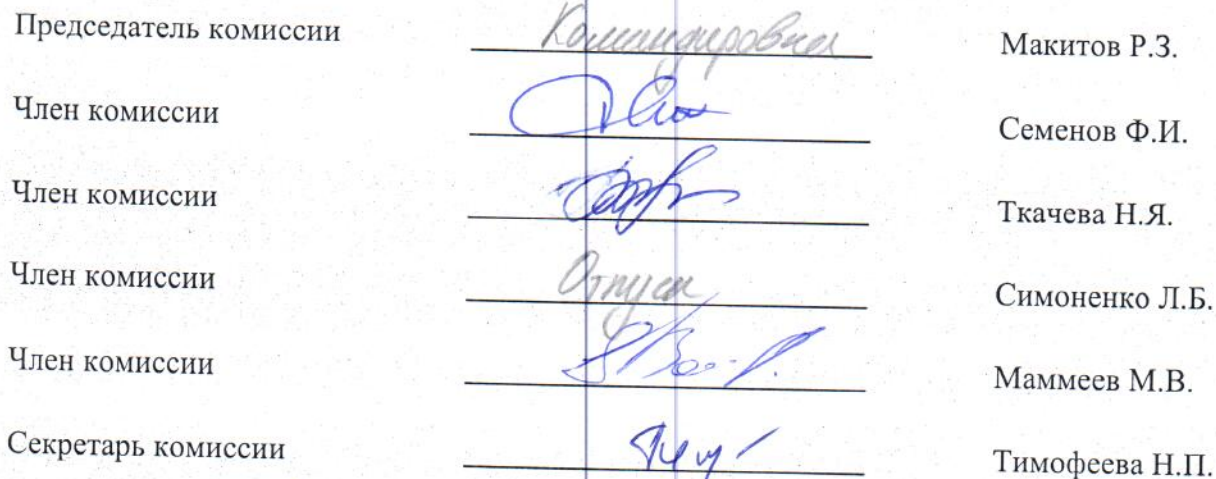 Председатель комиссии Командировка Макитов Р.З.
Член комиссии Семенов Ф.И.
Член комиссии Ткачева Н.Я.
Член комиссии Отпуск Симоненко Л.Б.
Член комиссии Маммеев М.В.
Секретарь комиссии Тимофеева Н.П.